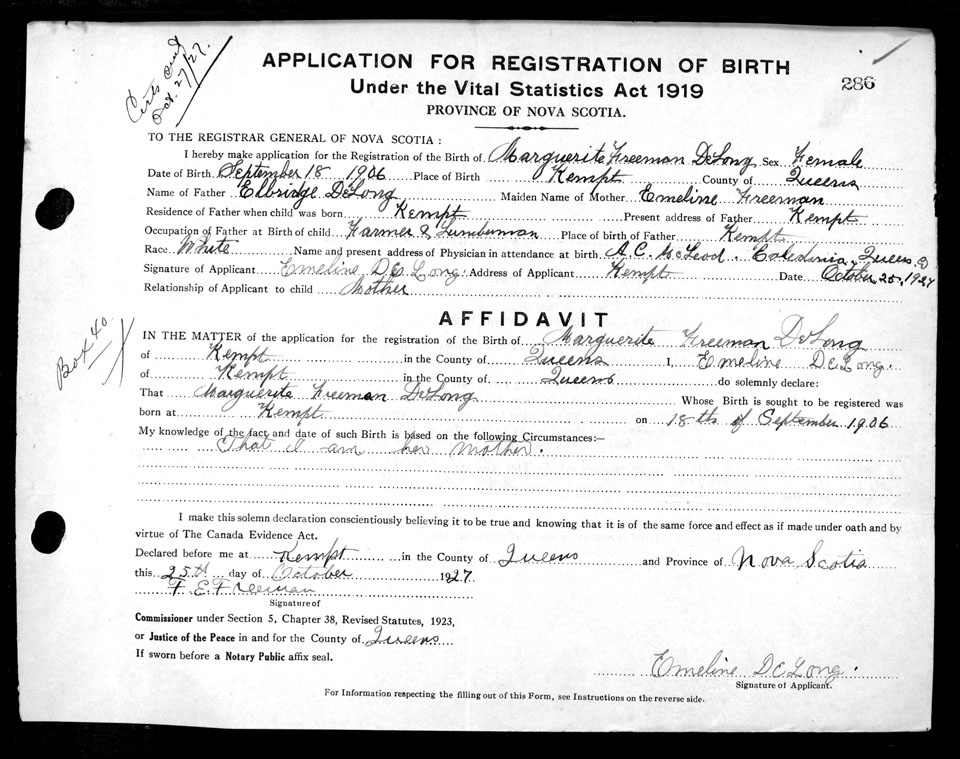 Certs Out
Oct. 27/27.
APPLICATION FOR REGISTRATION OF BIRTH
286
Under the Vital Statistics Act 1919
PROVINCE OF NOVA SCOTIA.
TO THE REGISTRAR GENERAL OF NOVA SCOTIA :
I hereby make application for the Registration of the Birth of Marguerite Freeman DeLong Sex Female
Date of Birth September 18 1906 Place of Birth Kempt County of Queens
Name of Father Elbridge DeLong Maiden Name of Mother Emeline Freeman
Residence of Father when child was born Kempt Present address of Father Kempt
Occupation of Father at Birth of child Farmer & Lumberman Place of birth of Father Kempt
Race White Name and present address of Physician in attendance at birth A. C. McLeod. Caledonia, Queens
Signature of Applicant Emeline DeLong. Address of Applicant Kempt Date October 25, 1927
Relationship of Applicant to child Mother
AFFIDAVIT
Box 40.
IN THE MATTER of the application for the registration of the Birth of Marguerite Freeman DeLong
of Kempt in the County of Queens I, Emeline DeLong.
of Kempt in the County of Queens do solemnly declare:
That Marguerite Freeman DeLong Whose Birth is sought to be registered was
born at Kempt on 18th of September 1906
My knowledge of the fact and date of such Birth is based on the following Circumstances:—
That I am her mother.
I make this solemn declaration conscientiously believing it to be true and knowing that it is of the same force and effect as if made under oath and by
virtue of The Canada Evidence Act.
Declared before me at Kempt in the County of Queens and Province of Nova Scotia
this 25th day of October 1927.
F. E. Freeman
Signature of
Commissioner under Section 5, Chapter 38, Revised Statutes, 1923,
or Justice of the Peace in and for the County of Queens
If sworn before a Notary Public affix seal.
Emeline DeLong.
Signature of Applicant.
For Information respecting the filling out of this Form, see Instructions on the reverse side.